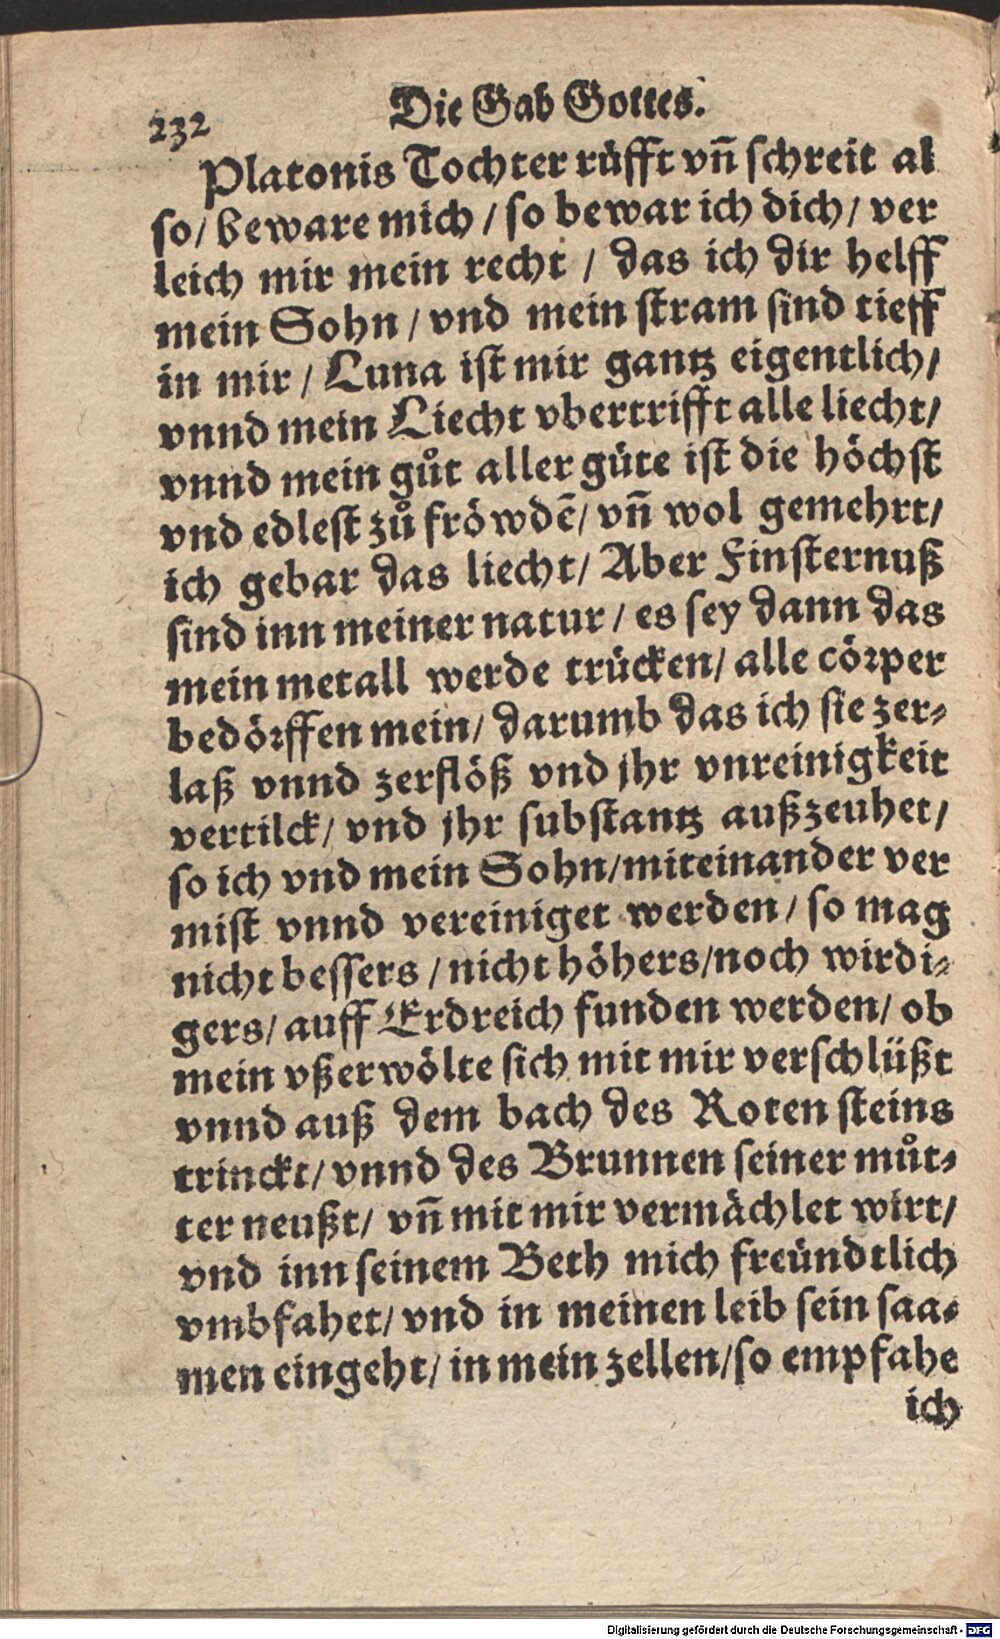 232
Die Gab Gottes.
Platonis Tochter rüfft vn̄ schreit al
so/ beware mich / so bewar ich dich/ ver
leich mir mein recht / das ich dir helff
mein Sohn / vnd mein stram sind tieff
in mir / Luna ist mir gantz eigentlich/
vnnd mein Liecht vbertrifft alle liecht/
vnnd mein gůt aller güte ist die höchst
vnd edlest zů fröwdē/ vn̄ wol gemehrt/
ich gebar das liecht/ Aber Finsternuß
sind inn meiner natur / es sey dann das
mein metall werde trücken/ alle cörper
bedörffen mein/ darumb das ich sie zer-
laß vnnd zerflöß vnd jhr vnreinigkeit
vertilck/ vnd jhr substantz außzeuhet/
so ich vnd mein Sohn/miteinander ver
mist vnnd vereiniget werden/ so mag
nicht bessers / nicht höhers/noch wirdi-
gers/ auff Erdreich funden werden/ ob
mein vßerwölte sich mit mir verschlüßt
vnnd auß dem bach des Roten steins
trinckt/ vnnd des Brunnen seiner můt-
ter neußt/ vn̄ mit mir vermächlet wirt/
vnd inn seinem Beth mich freündtlich
vmbfahet/ vnd in meinen leib sein saa-
men eingeht/ in mein zellen/so empfahe
ich
Digitalisierung gefördert durch die Deutsche Forschungsgemeinschaft - DFG